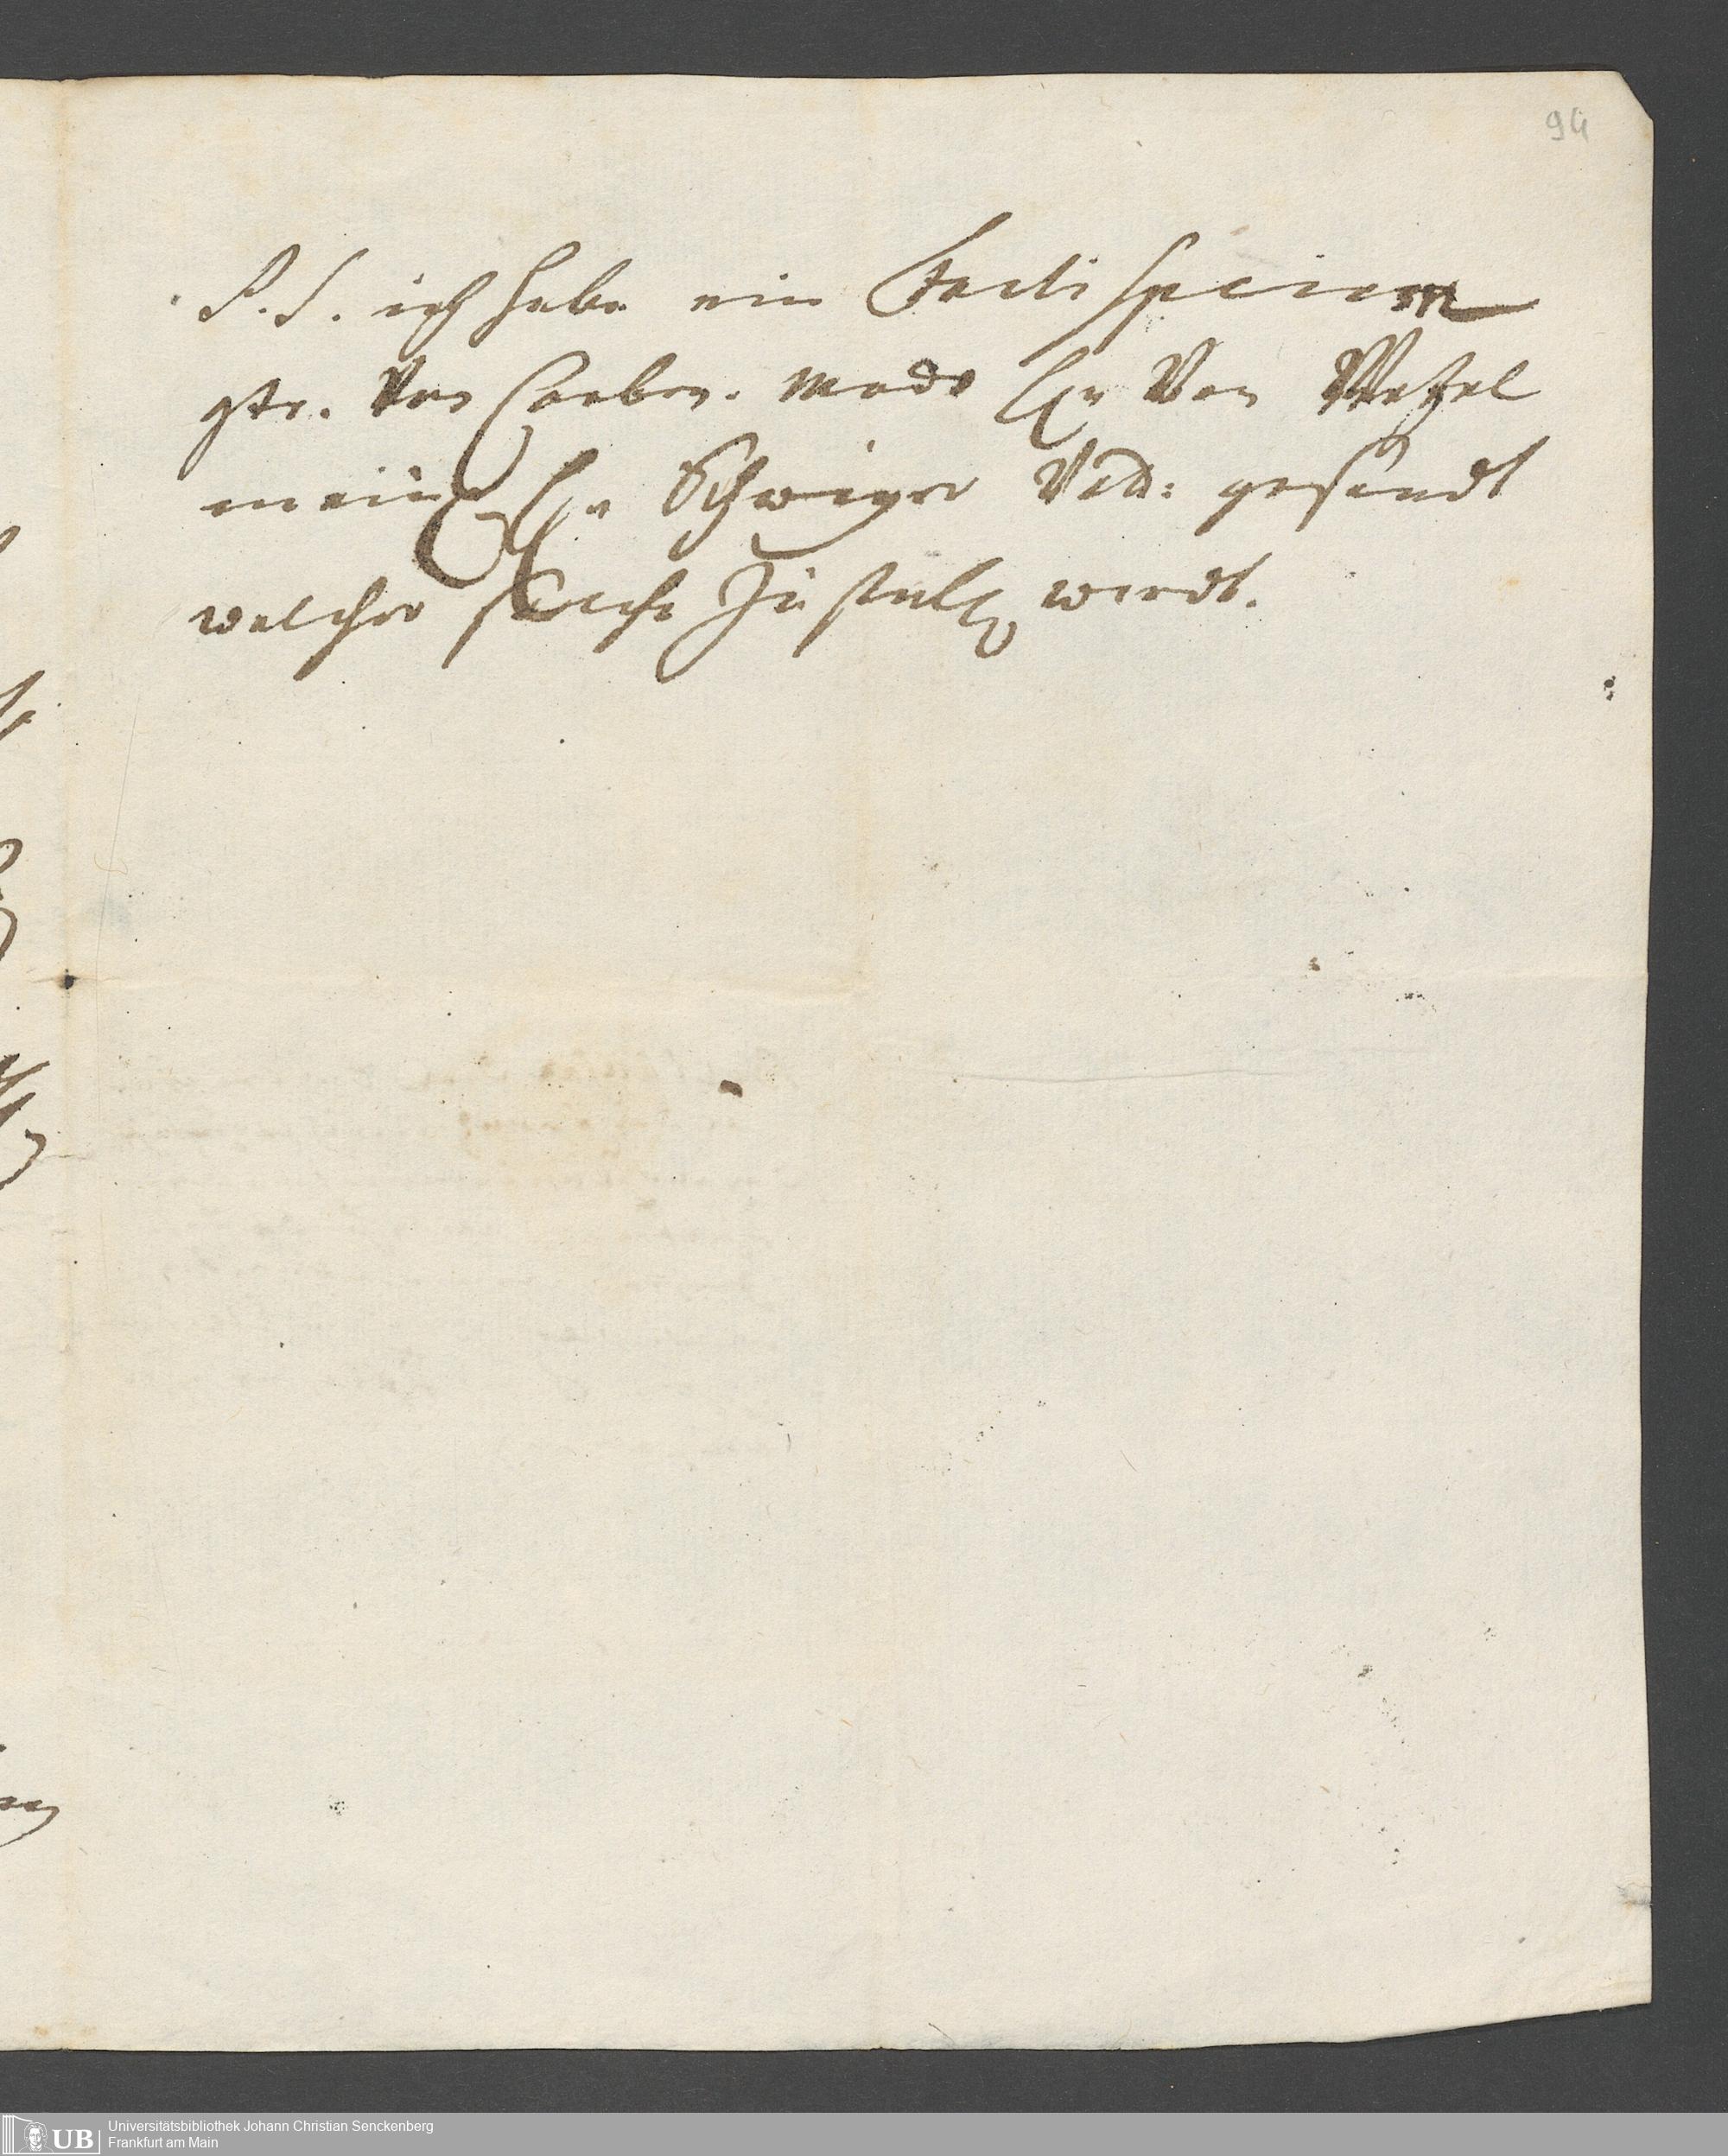 94
P.S. ich habe ein Facti Speciem
gtr. Von Carben. modo Hr Von Wetzel
meinem Hr Schwiger Vatt: gesandt
welcher solche zustellen wirdt.
UB Universitätsbibliothek Johann Christian Senckenberg
Frankfurt am Main